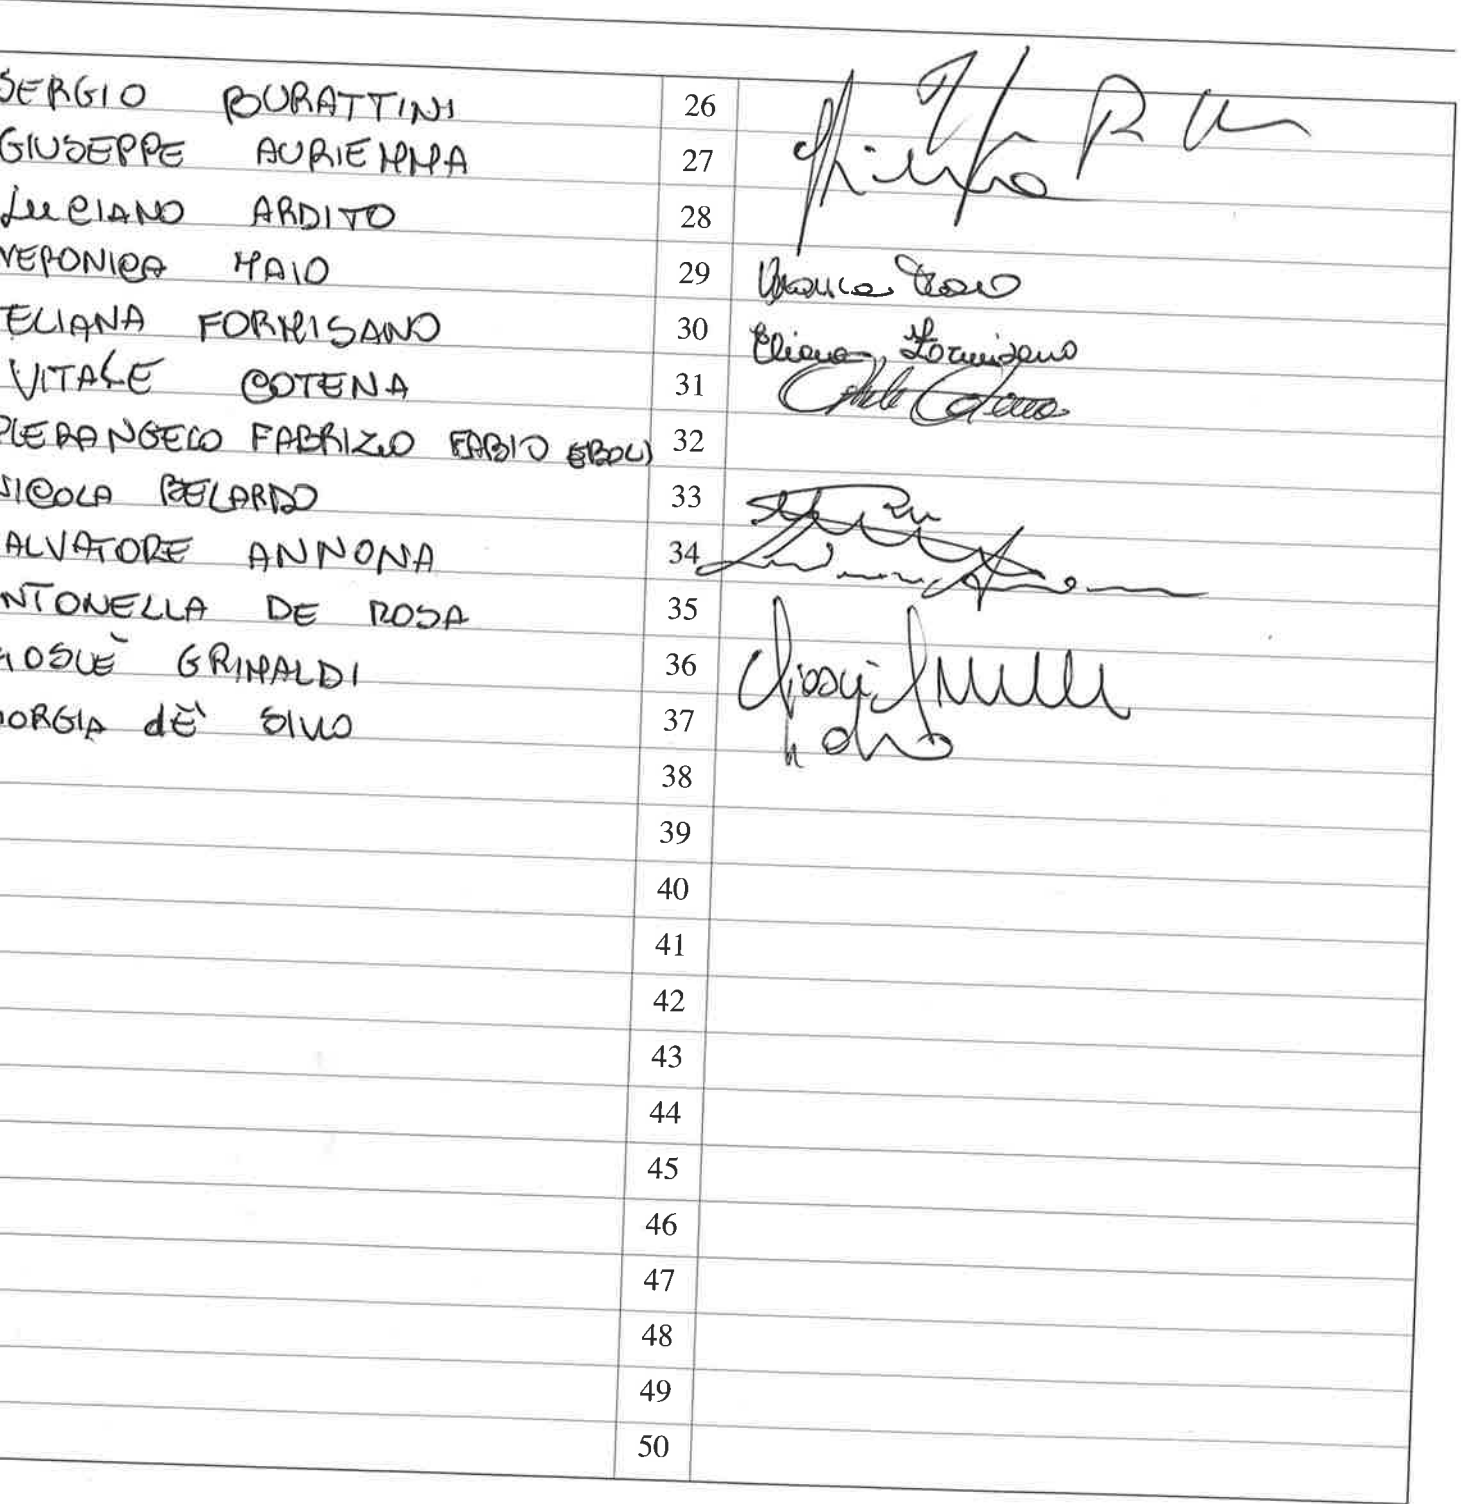 SERGIO BURATTINI 26
GIUSEPPE AURIEMMA 27
LUCIANO ARDITO 28
VERONICA MAIO 29 Veronica Maio
ELIANA FORMISANO 30 Eliana Formisano
VITALE COTENA 31 Vitale Cotena
PIERANGELO FABRIZIO FABIO EBOLI 32
NICOLA BELARDO 33
ALVATORE ANNONA 34
NTONELLA DE ROSA 35
IOSUÈ GRIMALDI 36
IORGIA dE' SIVO 37
38
39
40
41
42
43
44
45
46
47
48
49
50